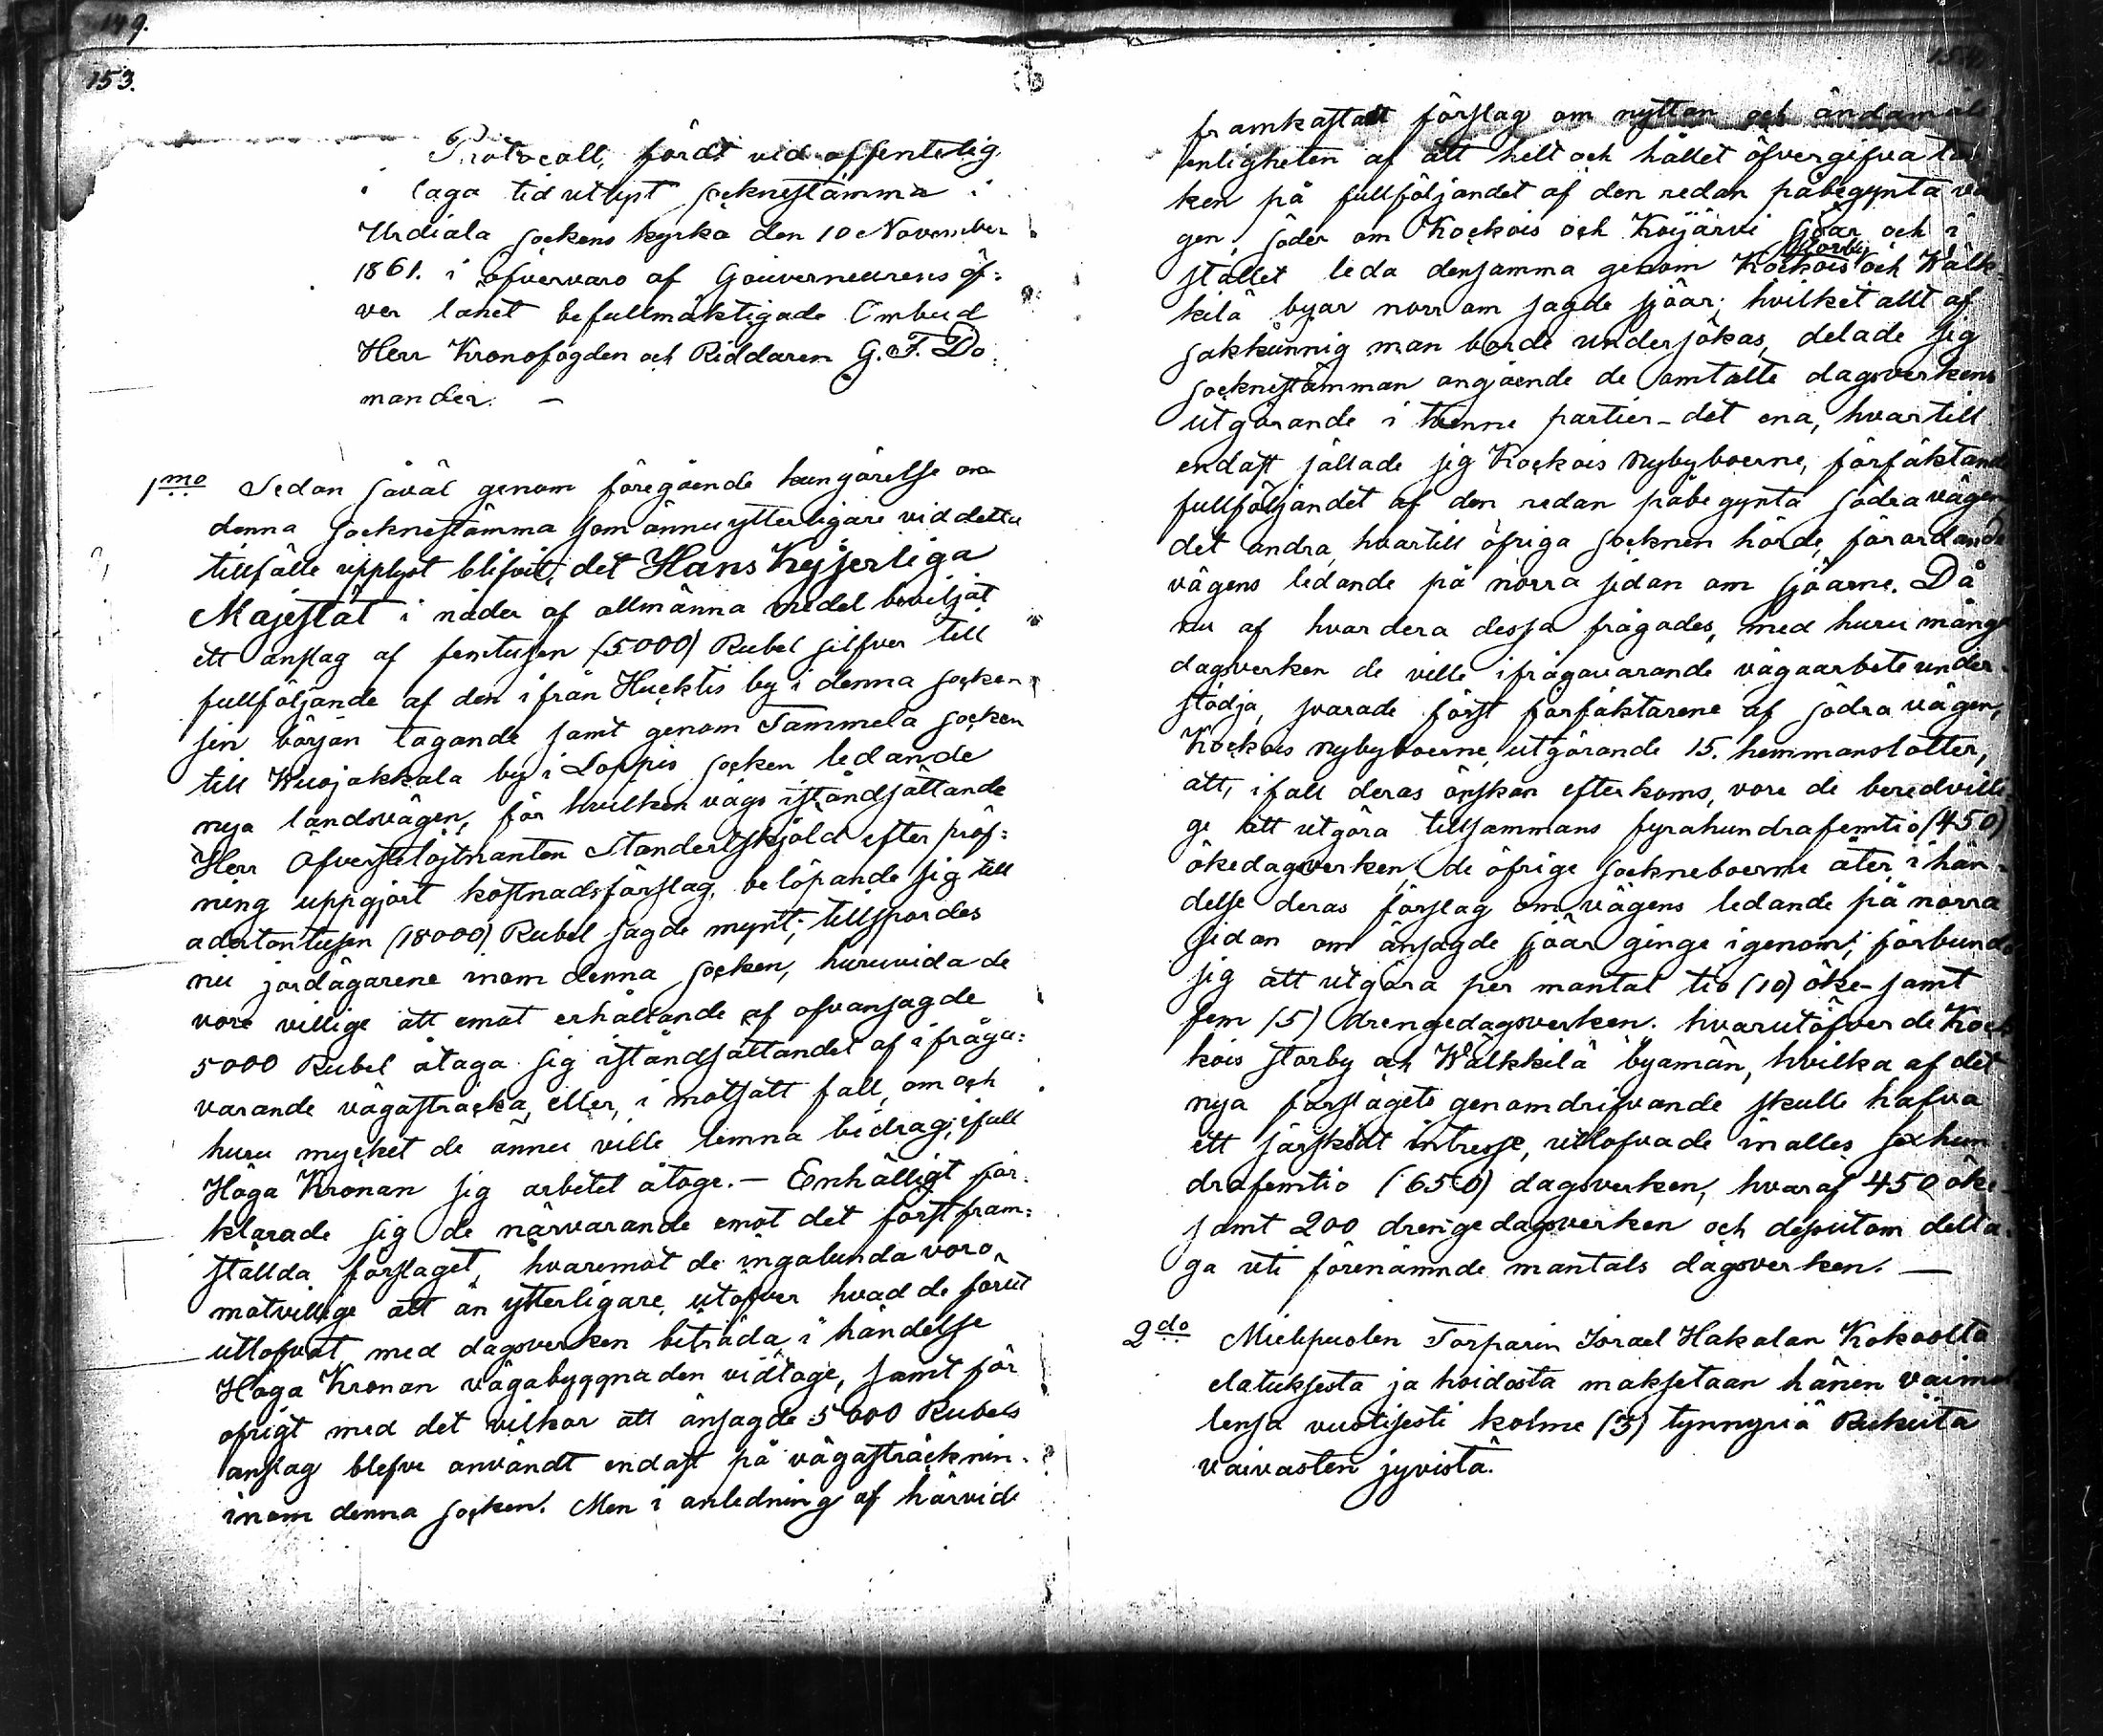 149.
153.
Protocoll, fördt vid offentelig
i laga tid utlyst socknestämma i
Urdiala sockens kyrka den 10 November
1861. i öfvervaro af Gouverneurens öf:
ver länet befullmäktigade Ombud
Herr Kronofogden och Riddaren G. F. Do:
mander. —
1mo Sedan såväl genom föregående kungörelse om
denna socknestämma som ännu ytterligare vid detta
tillfälle upplyst blifvit, det Hans Kejserliga
Majestät i nåder af allmänna medel beviljat
ett anslag af femtusen (5000) Rubel silfver till
fullföljande af den ifrån Hucktis by i denna socken
sin början tagande samt genom Tammela socken
till Wuojakkala by i Loppis socken ledande
nya landsvägen, för hvilken vägs iståndsättande
Herr Öfverstelöjtnanten Standertskjöld efter pröf:
ning uppgjort kostnadsförslag, belöpande sig till
adertontusen (18000) Rubel sagde mynt; tillspordes
nu jordägarene inom denna socken, huruvida de
vore villige att emot erhållande af ofvansagde
5000 Rubel åtaga sig iståndsättandet af ifråga:
varande vägasträcka, eller, i motsatt fall, om och
huru mycket de ännu ville lemna bidrag, ifall
Höga Kronan sig arbetet åtoge. — Enhälligt för:
klarade sig de närvarande emot det först fram:
ställda förslaget, hvaremot de ingalunda voro
motvillige att än ytterligare, utöfver hvad de förut
utlofvat med dagsverken beträda, i händelse
Höga Kronan vägabyggnaden vidtoge, samt för
öfrigt med det vilkor att ansagde 5000 Rubels
anslag blefve användt endast på vägasträcknin.
inom denna socken. Men i anledning af härvid
framkastadt förslag om nyttan och ändamåls
enligheten af att helt och hållet öfvergifva tan
ken på fullföljandet af den redan påbegynta vä
gen, söder om Kockois och Koijärvi sjöar och i
stället leda densamma genom Kockois Storby och Wälk
kilä byar norr om sagde sjöar; hvilket allt af
sakkunnig man borde undersökas, delade sig
socknestämman angående de omtalte dagsverkens
utgörande i tvenne partier – det ena, hvartill
endast sällade sig Kockois Nybyboerne, förfäktande
fullföljandet af den redan påbegynta södra vägen,
det andra, hvartill öfriga socknen hörde, förordande
vägens ledande på norra sidan om sjöarne. Då
nu af hvardera dessa frågades, med huru många
dagsverken de ville ifrågavarande vägaarbete under-
stödja, svarade först förfäktarene af södra vägen,
Kockois Nybyboerne, utgörande 15. hemmanslotter,
att, ifall deras önskan efterkoms, vore de beredvilli
ge att utgöra tillsammans fyrahundrafemtio (450)
ökedagsverken, de öfrige sockneboerne åter, i hän-
delse deras förslag om vägens ledande på norra
sidan om ansagde sjöar ginge igenom; förbundo
sig att utgöra per mantal tio (10) öke- samt
fem (5) drengedagsverken. hvarutöfver de Kock
kois storby och Wälkkilä byamän, hvilka af det
nya förslagets genomdrifvande skulle hafva
ett särskildt intresse, utlofvade inalles sexhun
drafemtio (650) dagsverken, hvaraf 450 öke-
samt 200 drengedagsverken och dessutom delta.
ga uti förenämnde mantals dagsverken. —
2do Mielipuolen Torparin Israel Hakalan Kokoolta
elatuksesta ja hoidosta maksetaan hänen vaimol
lensa vuotisesti kolme (3) tynnyriä Rukiita
vaivasten jyvistä.